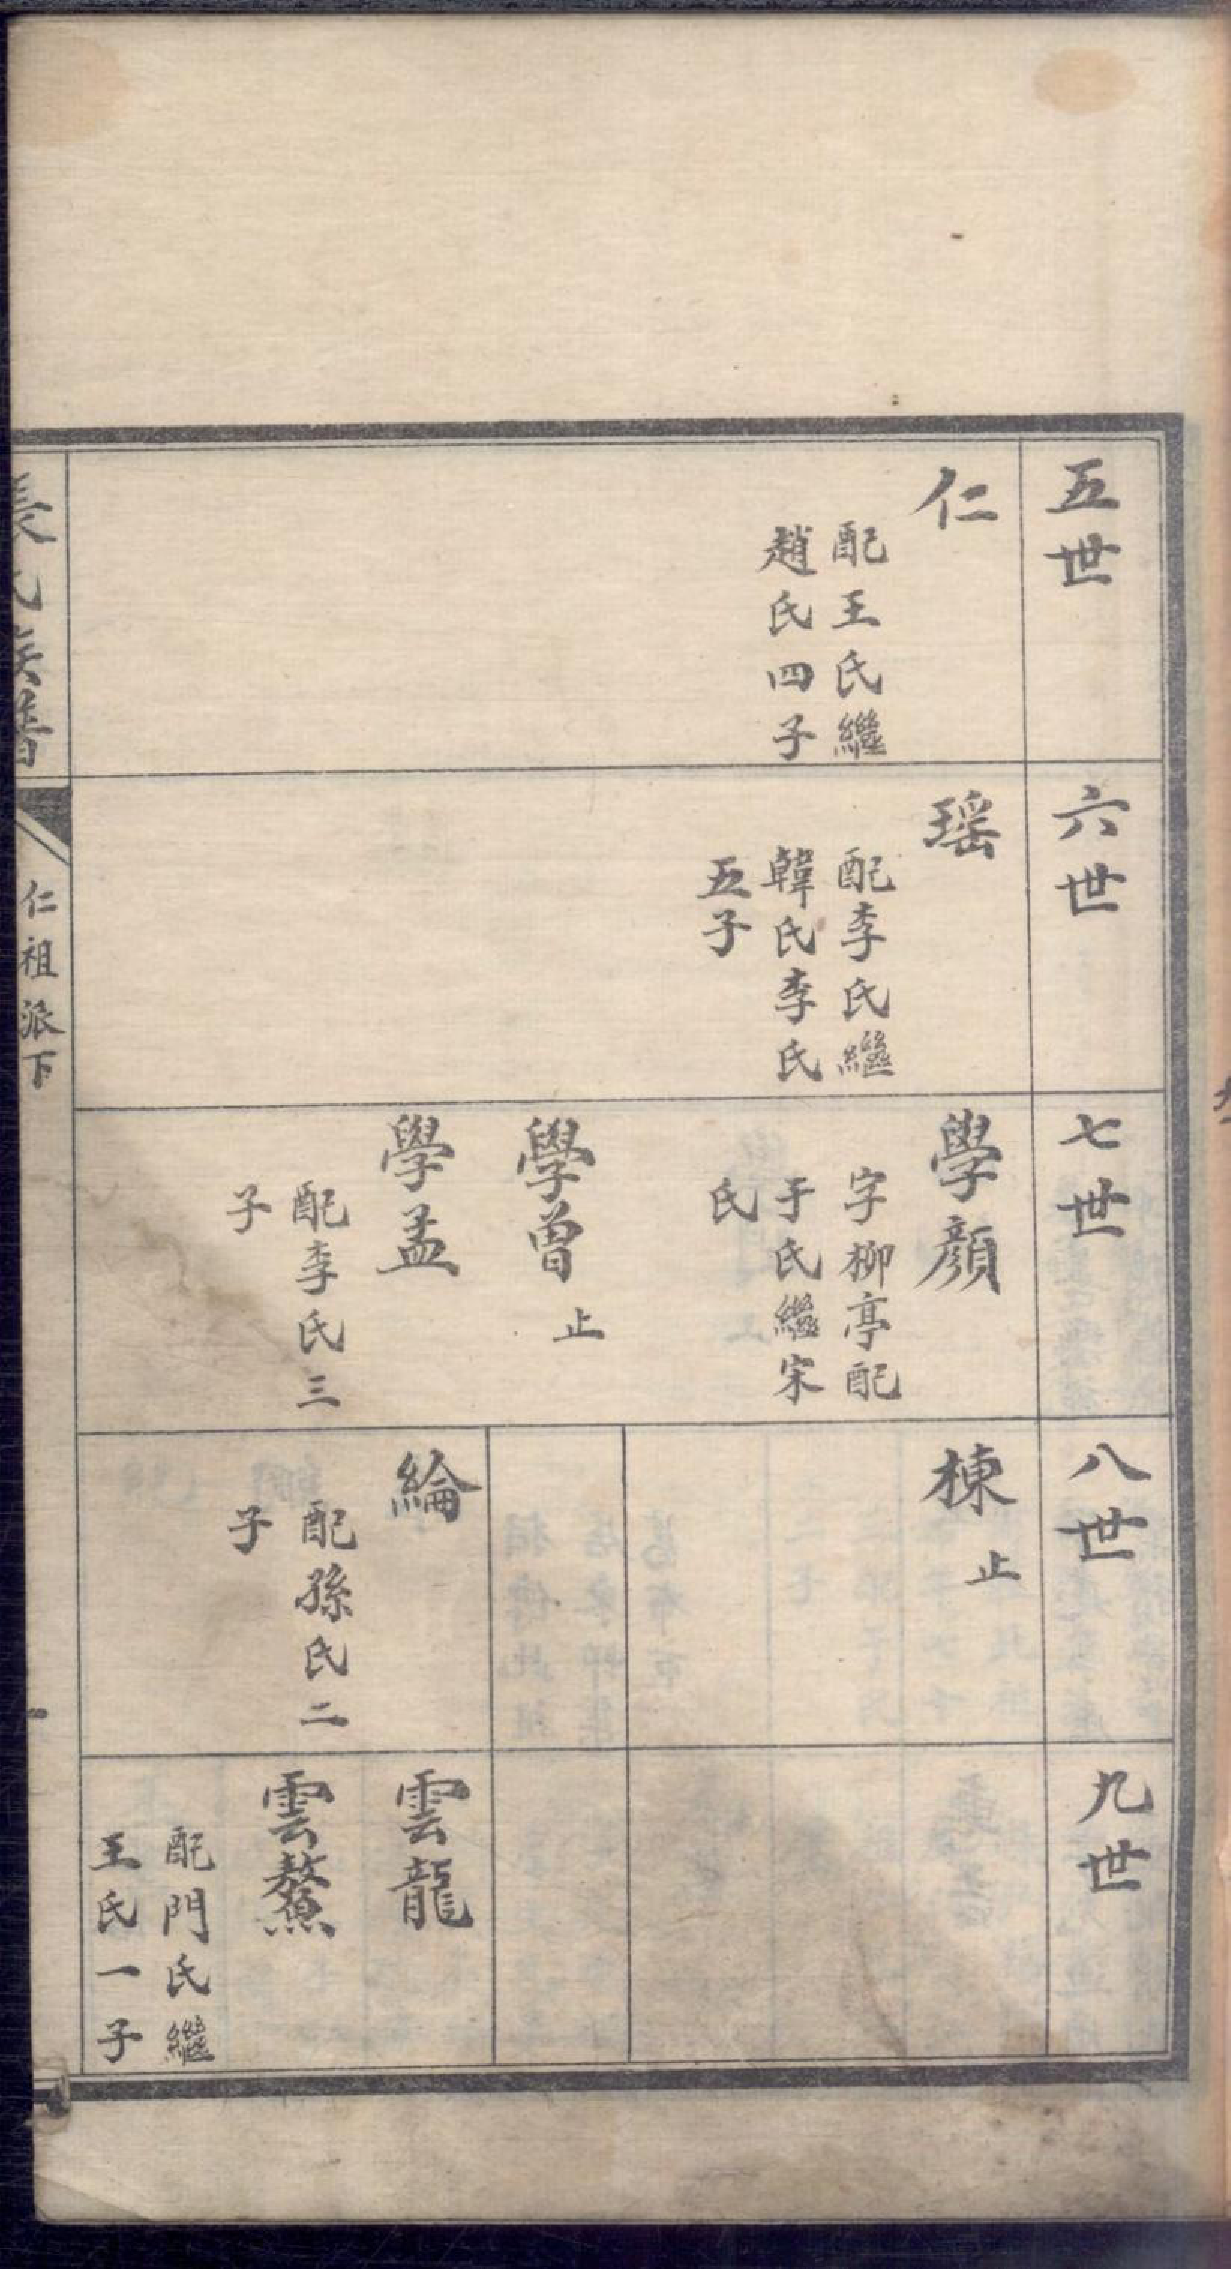 五世
仁
配王氏繼
趙氏四子
六世
瑶
配李氏繼
韓氏李氏
五子
七世
學顔
字柳亭配
于氏繼宋
氏
學曾
止
學孟
配李氏三
子
八世
棟
止
綸
配孫氏二
子
九世
雲龍
雲鰲
配門氏繼
王氏一子
長氏族譜
仁祖派下
一